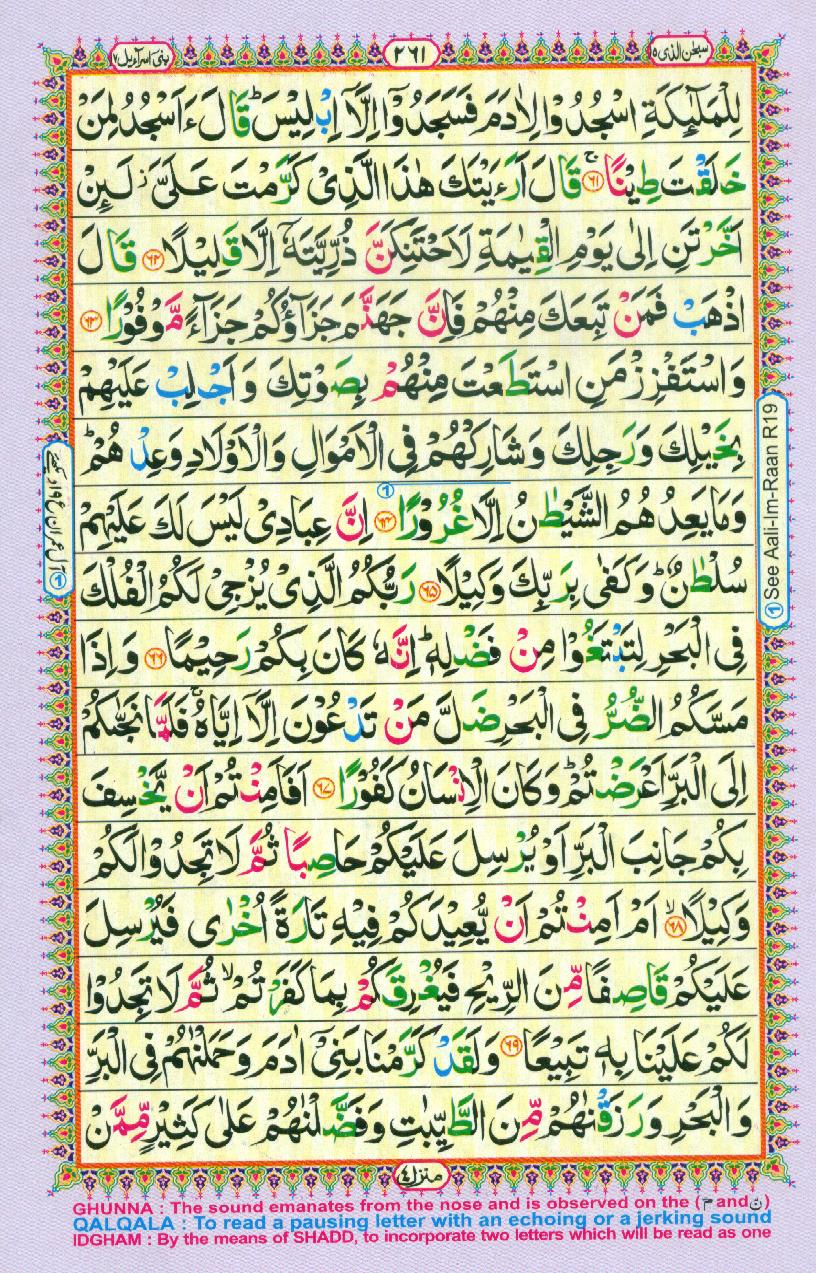 سبحٰن الذی ۱۵
۲۶۱
بنیٓ اسرآءیل ۱۷
لِلْمَلٰٓئِكَةِ اسْجُدُوْا لِاٰدَمَ فَسَجَدُوْۤا اِلَّاۤ اِبْلِیْسَؕ قَالَ ءَاَسْجُدُ لِمَنْ
خَلَقْتَ طِیْنًاۚ ﴿۶۱﴾ قَالَ اَرَءَیْتَكَ هٰذَا الَّذِیْ كَرَّمْتَ عَلَیَّؗ لَىِٕنْ
اَخَّرْتَنِ اِلٰی یَوْمِ الْقِیٰمَةِ لَاَحْتَنِكَنَّ ذُرِّیَّتَهٗۤ اِلَّا قَلِیْلًا ﴿۶۲﴾ قَالَ
اذْهَبْ فَمَنْ تَبِعَكَ مِنْهُمْ فَاِنَّ جَهَنَّمَ جَزَآؤُكُمْ جَزَآءً مَّوْفُوْرًا ﴿۶۳﴾
وَ اسْتَفْزِزْ مَنِ اسْتَطَعْتَ مِنْهُمْ بِصَوْتِكَ وَ اَجْلِبْ عَلَیْهِمْ
بِخَیْلِكَ وَ رَجِلِكَ وَ شَارِكْهُمْ فِی الْاَمْوَالِ وَ الْاَوْلَادِ وَ عِدْهُمْؕ
وَ مَا یَعِدُهُمُ الشَّیْطٰنُ اِلَّا غُرُوْرًا ﴿۶۴﴾ ① اِنَّ عِبَادِیْ لَیْسَ لَكَ عَلَیْهِمْ
سُلْطٰنٌؕ وَ كَفٰی بِرَبِّكَ وَكِیْلًا ﴿۶۵﴾ رَبُّكُمُ الَّذِیْ یُزْجِیْ لَكُمُ الْفُلْكَ
فِی الْبَحْرِ لِتَبْتَغُوْا مِنْ فَضْلِهٖؕ اِنَّهٗ كَانَ بِكُمْ رَحِیْمًا ﴿۶۶﴾ وَ اِذَا
مَسَّكُمُ الضُّرُّ فِی الْبَحْرِ ضَلَّ مَنْ تَدْعُوْنَ اِلَّاۤ اِیَّاهُۚ فَلَمَّا نَجّٰىكُمْ
اِلَی الْبَرِّ اَعْرَضْتُمْؕ وَ كَانَ الْاِنْسَانُ كَفُوْرًا ﴿۶۷﴾ اَفَاَمِنْتُمْ اَنْ یَّخْسِفَ
بِكُمْ جَانِبَ الْبَرِّ اَوْ یُرْسِلَ عَلَیْكُمْ حَاصِبًا ثُمَّ لَا تَجِدُوْا لَكُمْ
وَكِیْلًاۙ ﴿۶۸﴾ اَمْ اَمِنْتُمْ اَنْ یُّعِیْدَكُمْ فِیْهِ تَارَةً اُخْرٰی فَیُرْسِلَ
عَلَیْكُمْ قَاصِفًا مِّنَ الرِّیْحِ فَیُغْرِقَكُمْ بِمَا كَفَرْتُمْۙ ثُمَّ لَا تَجِدُوْا
لَكُمْ عَلَیْنَا بِهٖ تَبِیْعًا ﴿۶۹﴾ وَ لَقَدْ كَرَّمْنَا بَنِیْۤ اٰدَمَ وَ حَمَلْنٰهُمْ فِی الْبَرِّ
وَ الْبَحْرِ وَ رَزَقْنٰهُمْ مِّنَ الطَّیِّبٰتِ وَ فَضَّلْنٰهُمْ عَلٰی كَثِیْرٍ مِّمَّنْ
① See Aali-Im-Raan R19
① آل عمران ع ۱۹ دیکھئے
منزل ۴
GHUNNA : The sound emanates from the nose and is observed on the (م and ن)
QALQALA : To read a pausing letter with an echoing or a jerking sound
IDGHAM : By the means of SHADD, to incorporate two letters which will be read as one